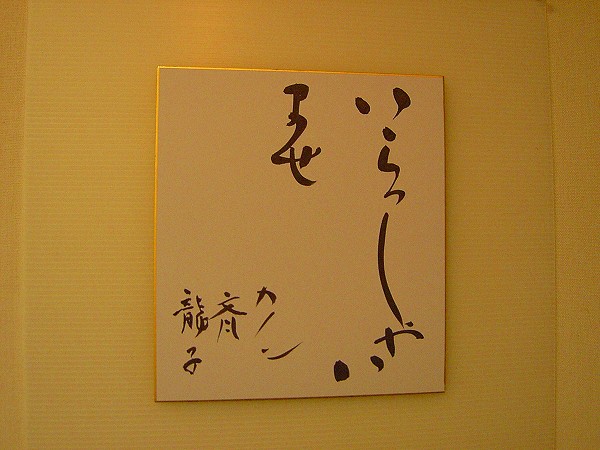 いらっしゃい
ませ
カノン
斉
龍子